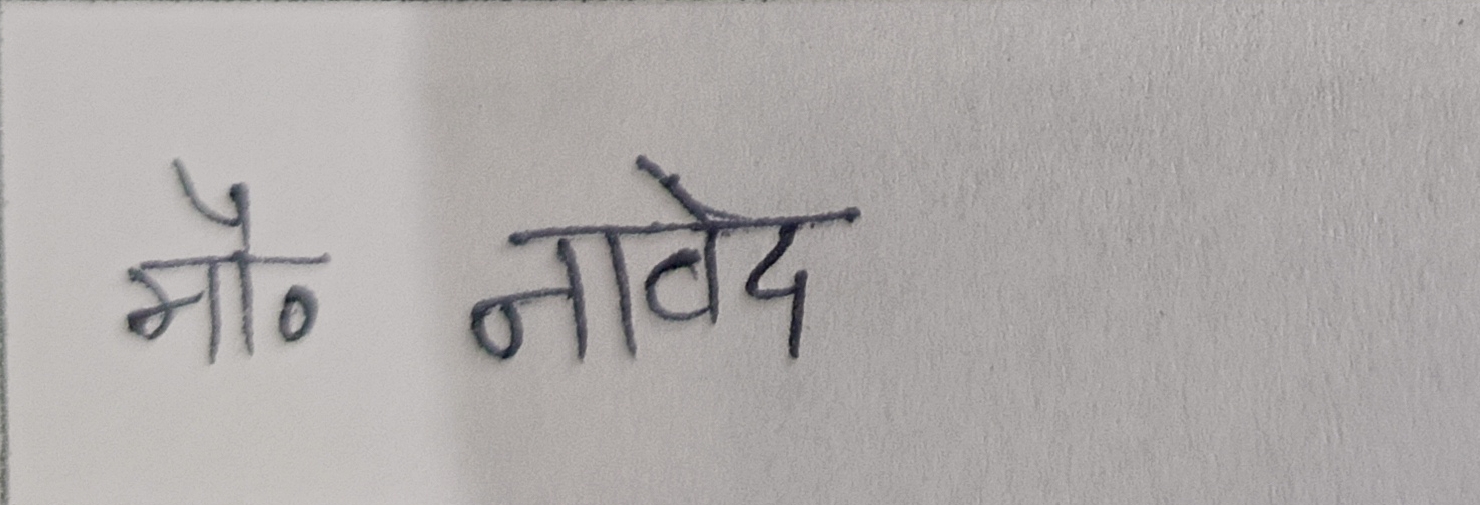 मौ० नावेद